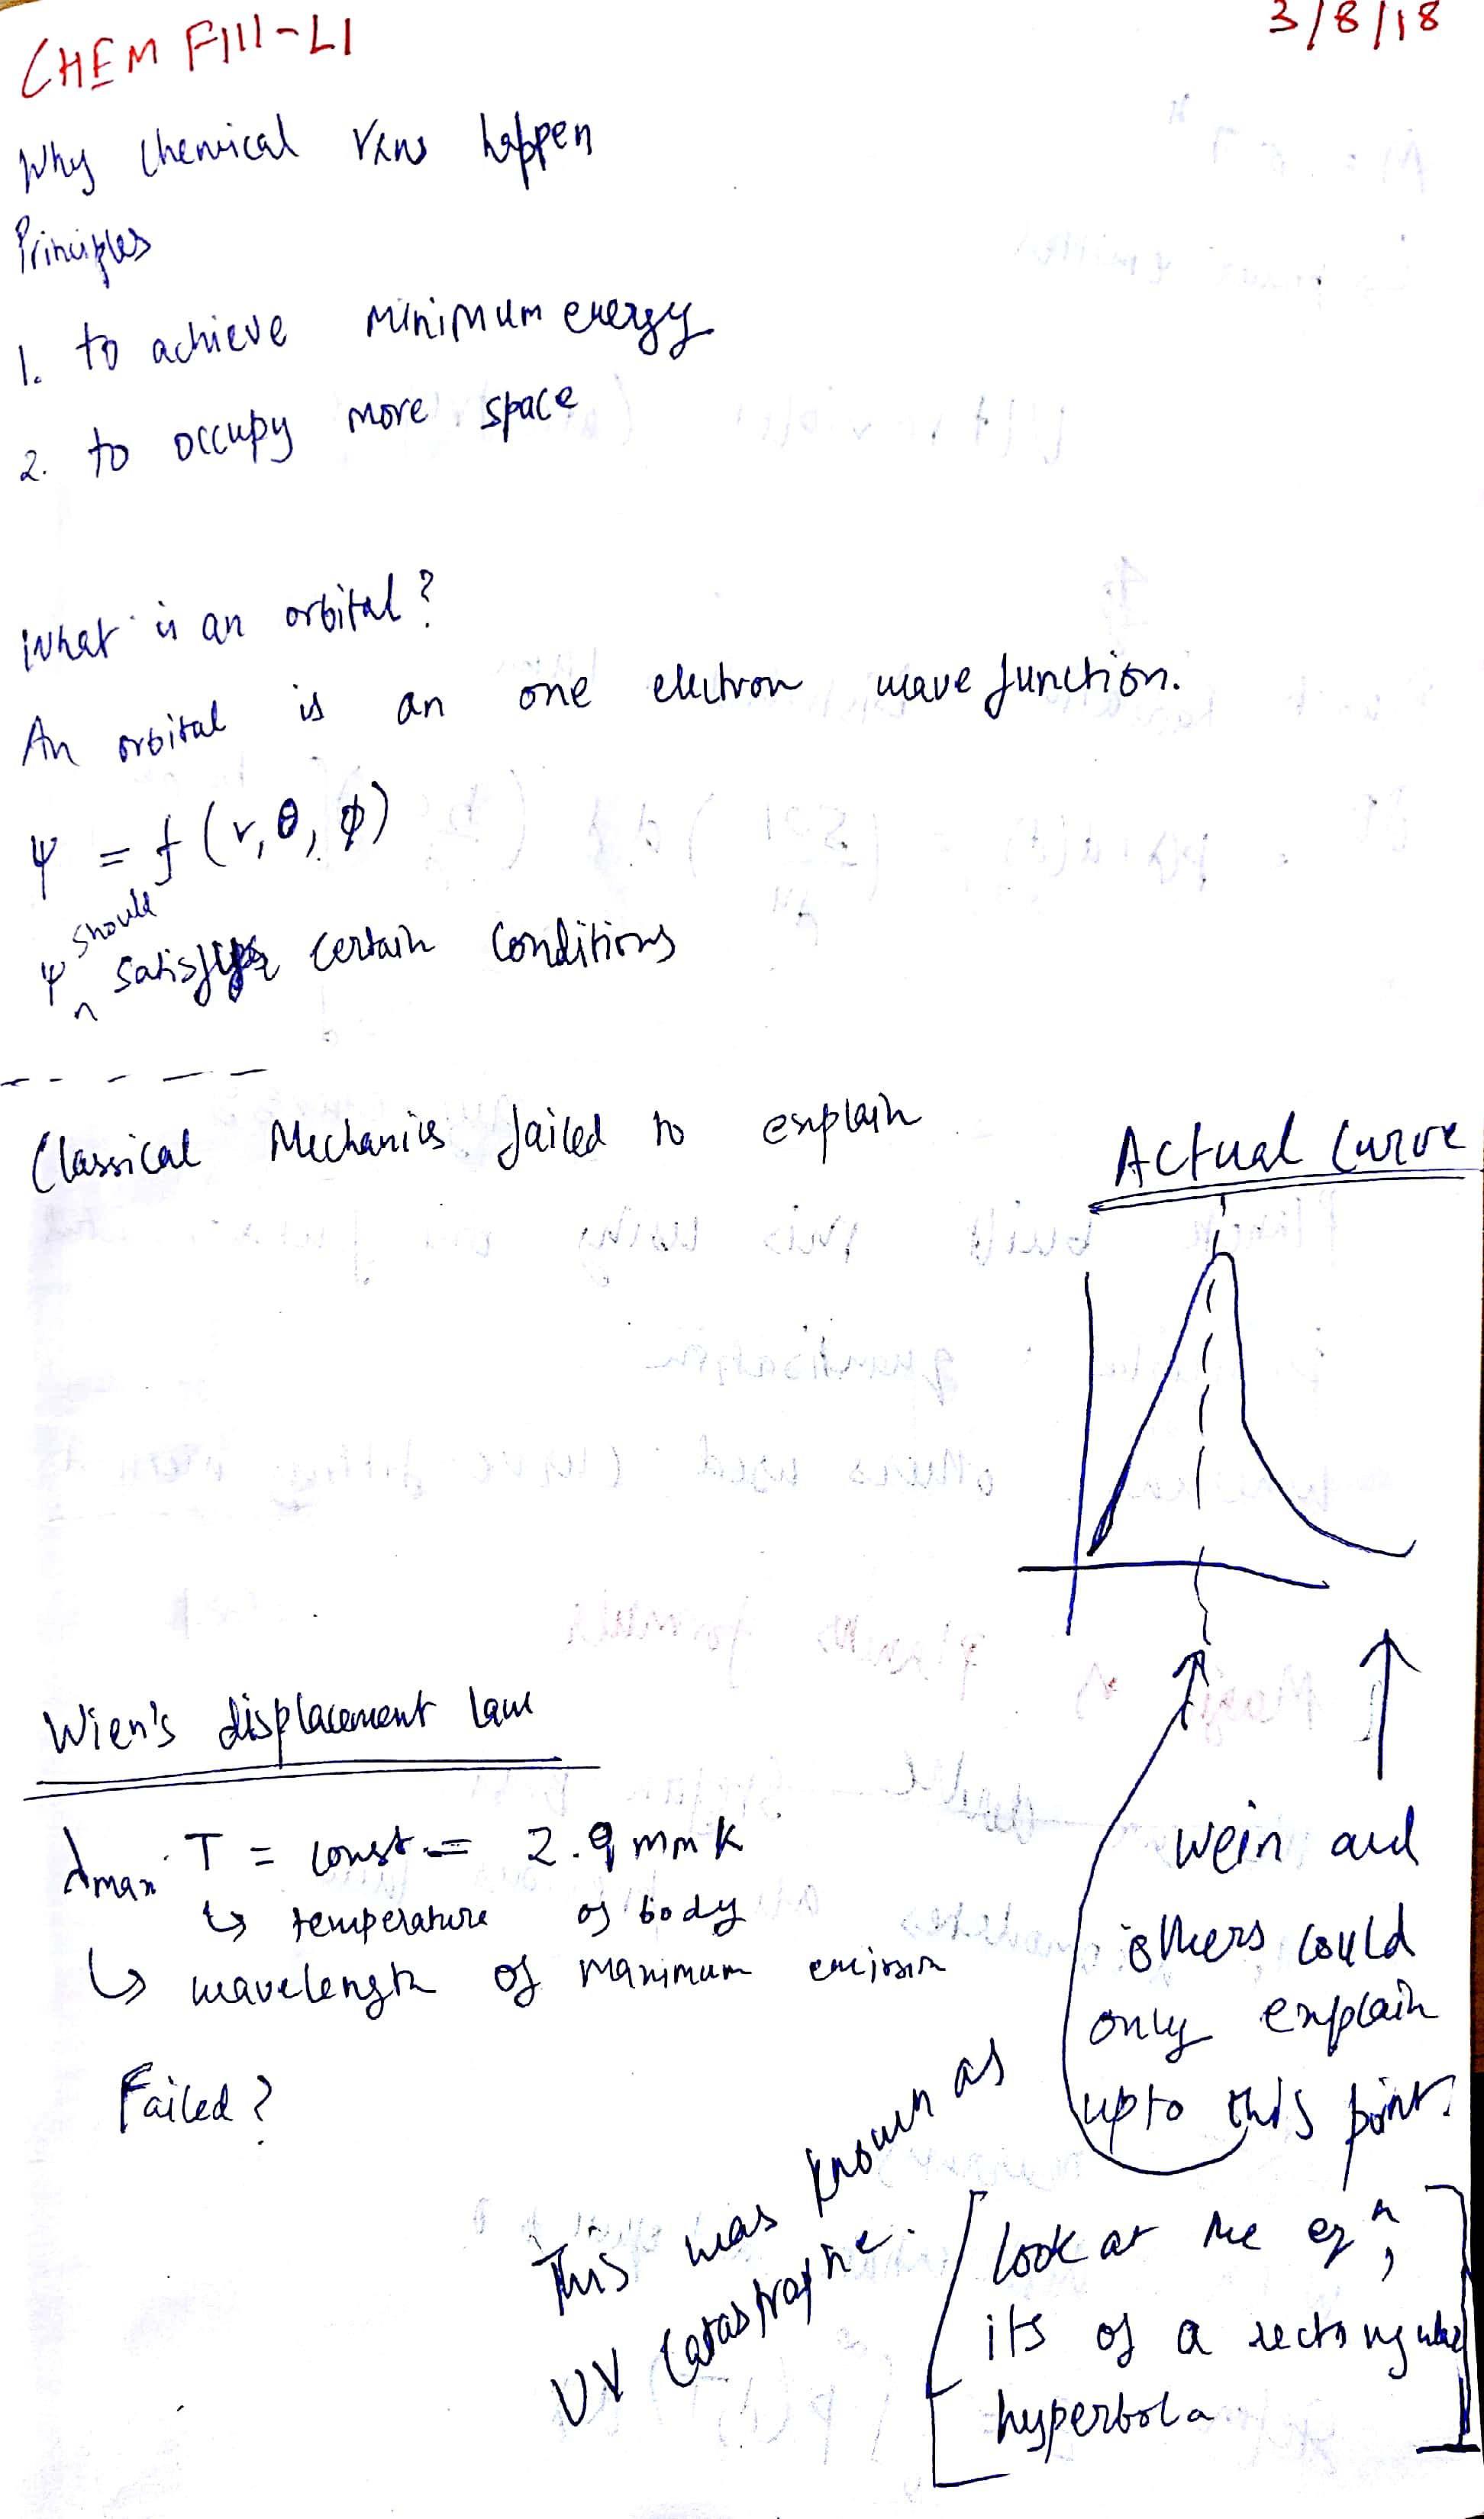 CHEM F111-L1
3/8/18
Why chemical rxns happen
Principles
1. to achieve minimum energy
2. to occupy more space
What is an orbital?
An orbital is an one electron wave function.
Ψ = f (r, θ, φ)
Ψ should satisfy certain conditions
Classical Mechanics failed to explain
Actual Curve
Wien's displacement law
λmax T = const = 2.9 mm K
↳ temperature of body
↳ wavelength of maximum emission
Failed?
Wein and
others could
only explain
upto this point.
This was known as
UV Catastrophe.
[look at the eqn,
its of a rectangular
hyperbola]